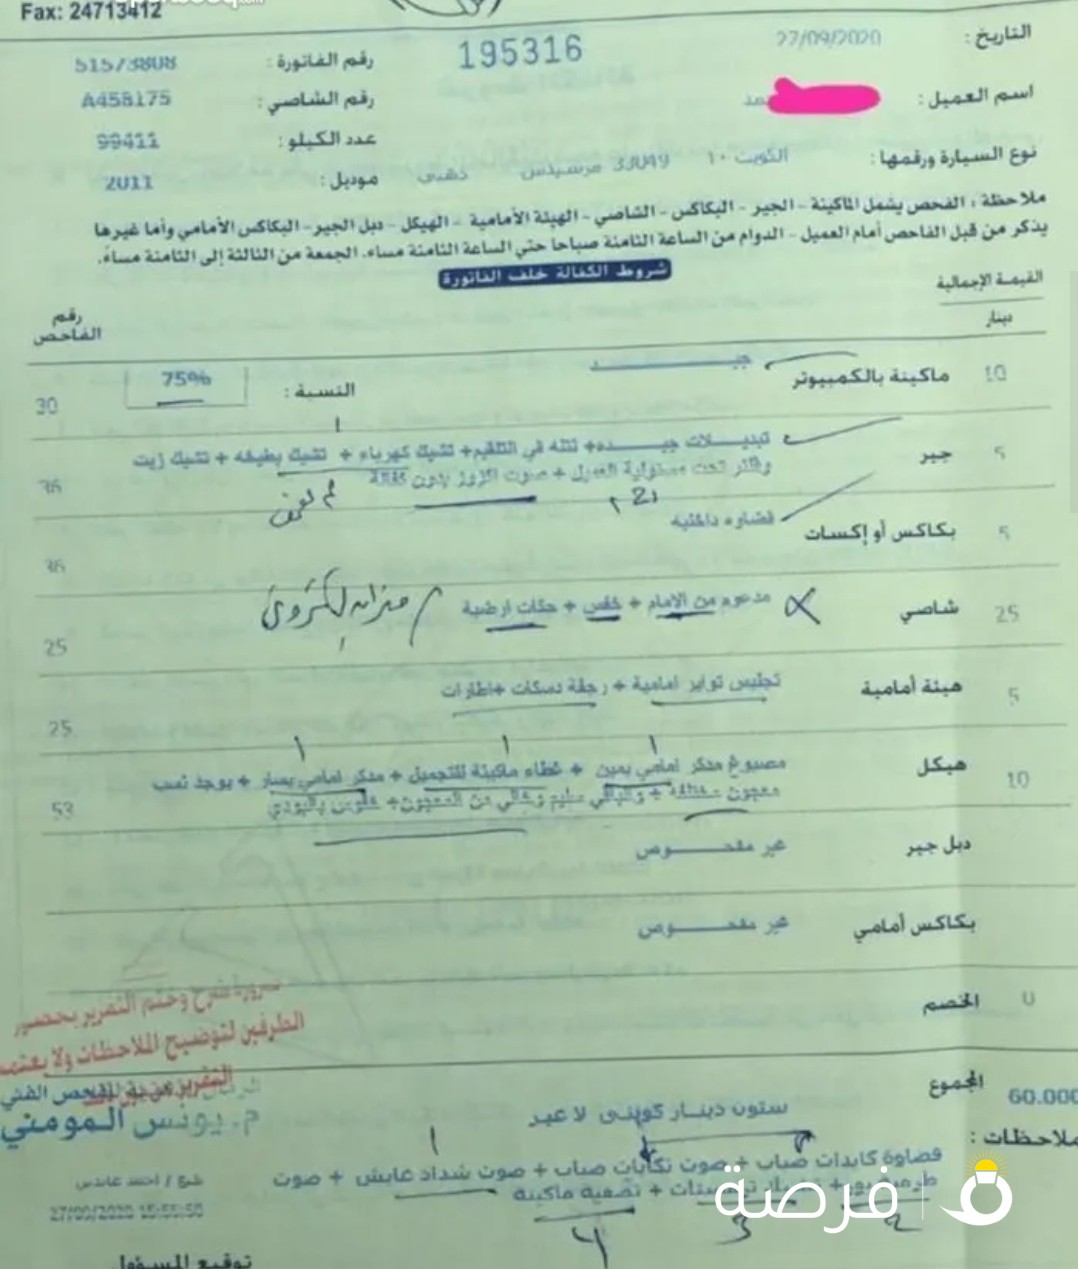 Fax: 24713412
التاريخ : 27/09/2020
195316
رقم الفاتورة : 51573808
اسم العميل :
رقم الشاصي : A458175
عدد الكيلو : 99411
نوع السيارة ورقمها : الكويت ١٠ 33049 مرسيدس ذهبي
موديل : 2011
ملاحظة : الفحص يشمل الماكينة - الجير - البكاكس - الشاصي - الهيئة الأمامية - الهيكل - دبل الجير - البكاكس الأمامي وأما غيرها
يذكر من قبل الفاحص أمام العميل - الدوام من الساعة الثامنة صباحا حتي الساعة الثامنة مساء، الجمعة من الثالثة إلى الثامنة مساءً.
شروط الكفالة خلف الفاتورة
القيمة الإجمالية
دينار
رقم الفاحص
10 ماكينة بالكمبيوتر جيـــــد النسبة : 75% 30
5 جير تبديـــلات جيـــده + نتله في التلقيم + تشيك كهرباء + تشيك بطيخه + تشيك زيت
وفلتر تحت مسئولية العميل + صوت اكزوز بدون كفالة 36
5 بكاكس أو إكسات قضاره داخليه 36
25 شاصي مدعوم من الامام + خفس + حكات ارضية ميزان الكتروني 25
5 هيئة أمامية تجليس تواير امامية + رجفة دسكات + اطارات 25
10 هيكل مصبوغ مدكر امامي يمين + غطاء ماكينة للتجميل + مدكر امامي يسار + يوجد نسب
معجون مختلفة + والباقي سليم وخالي من المعجون + طوس بالبودي 53
دبل جير غير مفحـــوص
بكاكس أمامي غير مفحـــوص
0 الخصم
ضرورة شرح وختم التقرير بحضور
الطرفين لتوضيح الملاحظات ولا يعتمد
التقرير
60.000 المجموع
ستون دينار كويتي لا غير
الفحص الفني
م. يونس المومني
ملاحظات :
قضاوة كابدات صباب + صوت تكايات صباب + صوت شداد عايش + صوت
+ تصفية ماكينة
2 3 4
27/09/2020 15:55:50
توقيع المسؤول
فرصة